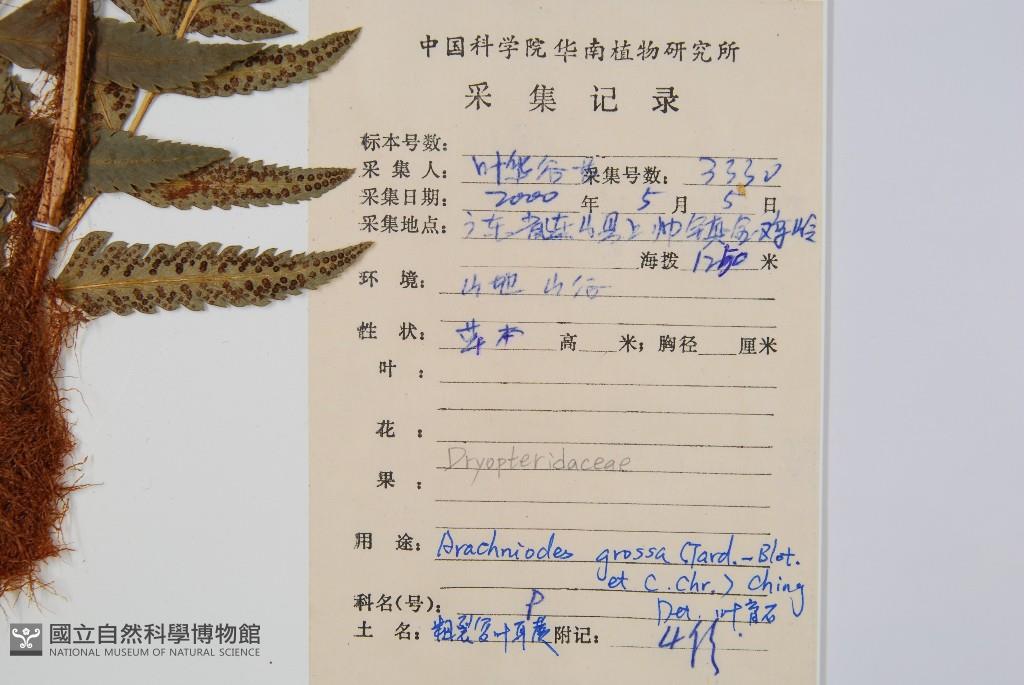 中国科学院华南植物研究所
采集记录
标本号数：
采集人：叶华谷 采集号数：3330
采集日期：2000年5月5日
采集地点：广东省连山县上帅镇金鸡岭
海拨1250米
环境：山地 山谷
性状：草本 高 米；胸径 厘米
叶：
花：
Dryopteridaceae
果：
用途：Arachniodes grossa (Tard.-Blot.
et C. Chr.) Ching
科名(号)： P Det. 叶育石
土名：粗裂复叶耳蕨 附记：4份
國立自然科學博物館
NATIONAL MUSEUM OF NATURAL SCIENCE